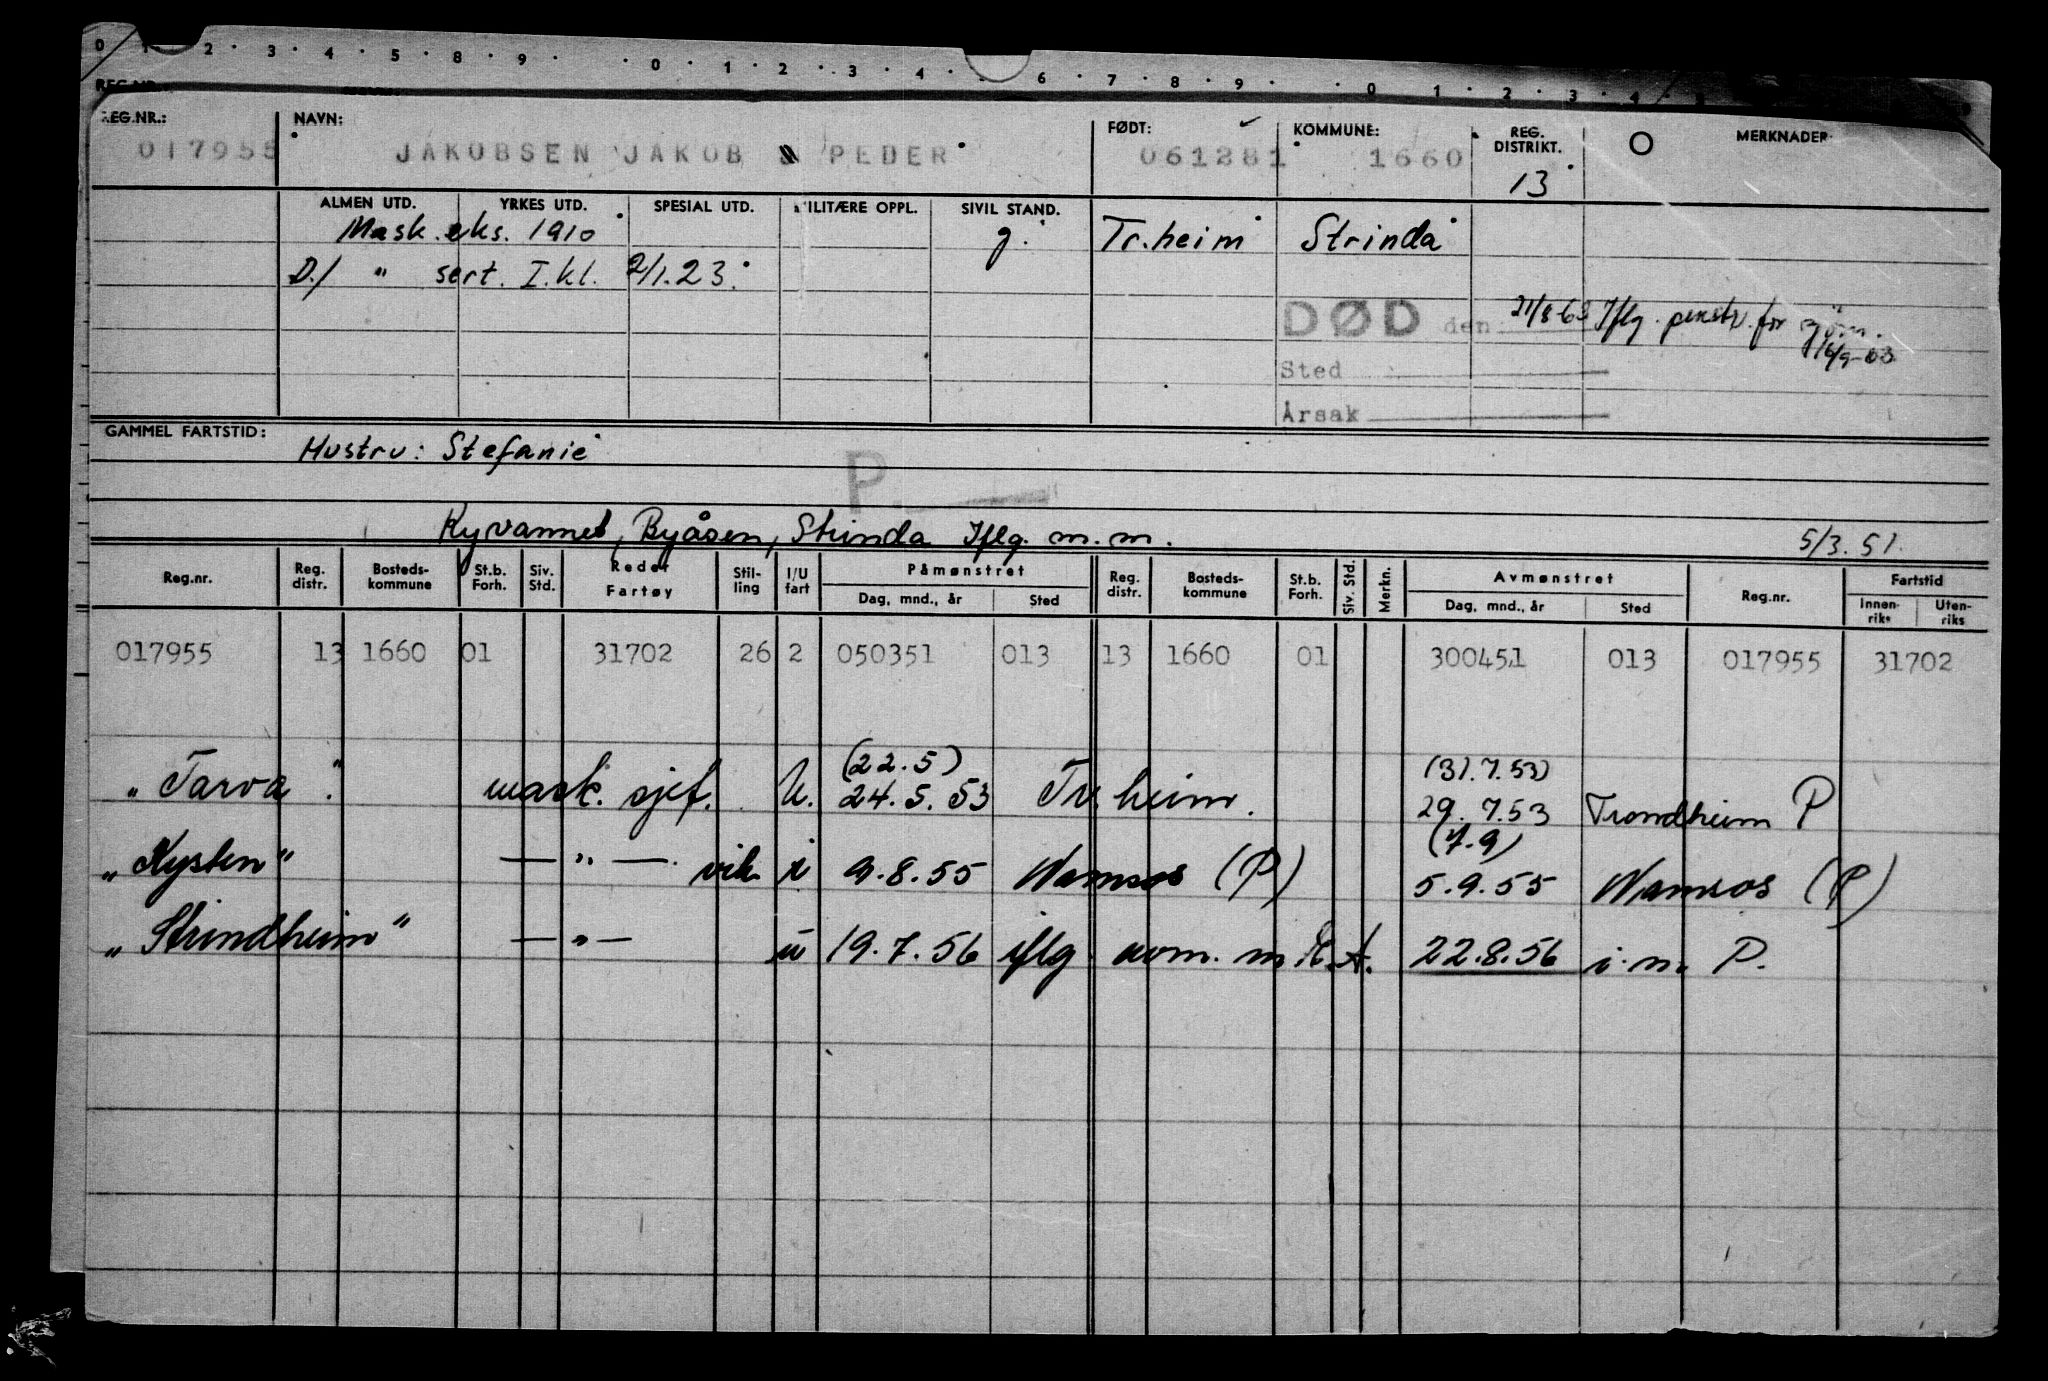 0 1 2 3 4 5 8 9 0 1 2 3 4 6 7 8 9 0 1 2 3 4
REG.NR.: NAVN: FØDT: KOMMUNE: REG. DISTRIKT. MERKNADER
017955 JAKOBSEN JAKOB PEDER 061281 1660 13
ALMEN UTD. YRKES UTD. SPESIAL UTD. MILITÆRE OPPL. SIVIL STAND.
Mask. eks. 1910 g. Tr.heim Strinda
D./ " sert. I.kl. 2/1.23.
DØD den: 21/8 63 Iflg. penstr. for sjøm.
16/9-63
Sted
Årsak
GAMMEL FARTSTID:
Hustru: Stefanie
P.
Kyvannet, Byåsen, Strinda Iflg. m.m. 5/3.51.
Reg.nr. Reg. distr. Bosteds-kommune St.b. Forh. Siv. Std. Rederi Fartøy Stil-ling I/U fart Påmønstret Dag, mnd., år Sted Reg. distr. Bosteds-kommune St.b. Forh. Siv. Std. Merkn. Avmønstret Dag, mnd., år Sted Reg.nr. Fartstid Innen-riks Uten-riks
017955 13 1660 01 31702 26 2 050351 013 13 1660 01 300451 013 017955 31702
(22.5) (31.7.53)
"Tarva". mask. sjef. U. 24.5.53 Tr.heim. 29.7.53 Trondheim P
(7.9)
"Kysten" — " — vik i 9.8.55 Namsos (P) 5.9.55 Namsos (P)
"Strindheim" — " — u 19.7.56 iflg avm. m R.A. 22.8.56 i.m. P.